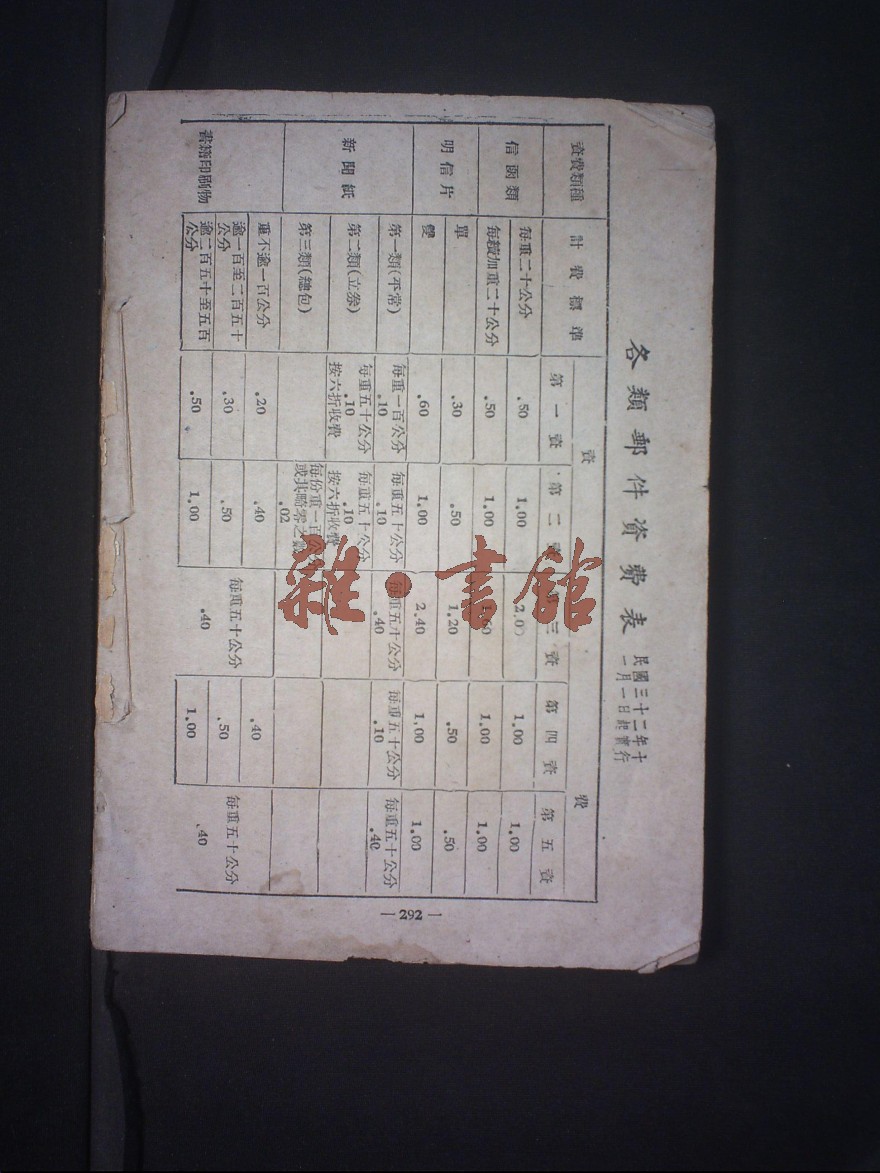 各類郵件資費表
民國三十二年十
一月一日起實行
資費類種 計費標準 資費
第一資 第二資 第三資 第四資 第五資
信函類 每重二十公分 .50 1.00 2.00 1.00 1.00
每續加重二十公分 .50 1.00 1.00 1.00
明信片 單 .30 .50 1.20 .50 .50
雙 .60 1.00 2.40 1.00 1.00
新聞紙 第一類(平常) 每重一百公分 .10 每重五十公分 .10 每重五十公分 .40 每重五十公分 .10 每重五十公分 .40
第二類(立劵) 每重五十公分 .10 按六折收費 每重五十公分 .10 按六折收費
第三類(總包) 每份重一百公分
或其畸零之數
.02
書籍印刷物 重不逾一百公分 .20 .40 每重五十公分 .40 .40 每重五十公分 .40
逾一百至二百五十
公分 .30 .50 .50
逾二百五十至五百
公分 .50 1.00 1.00
— 292 —
雜·書館